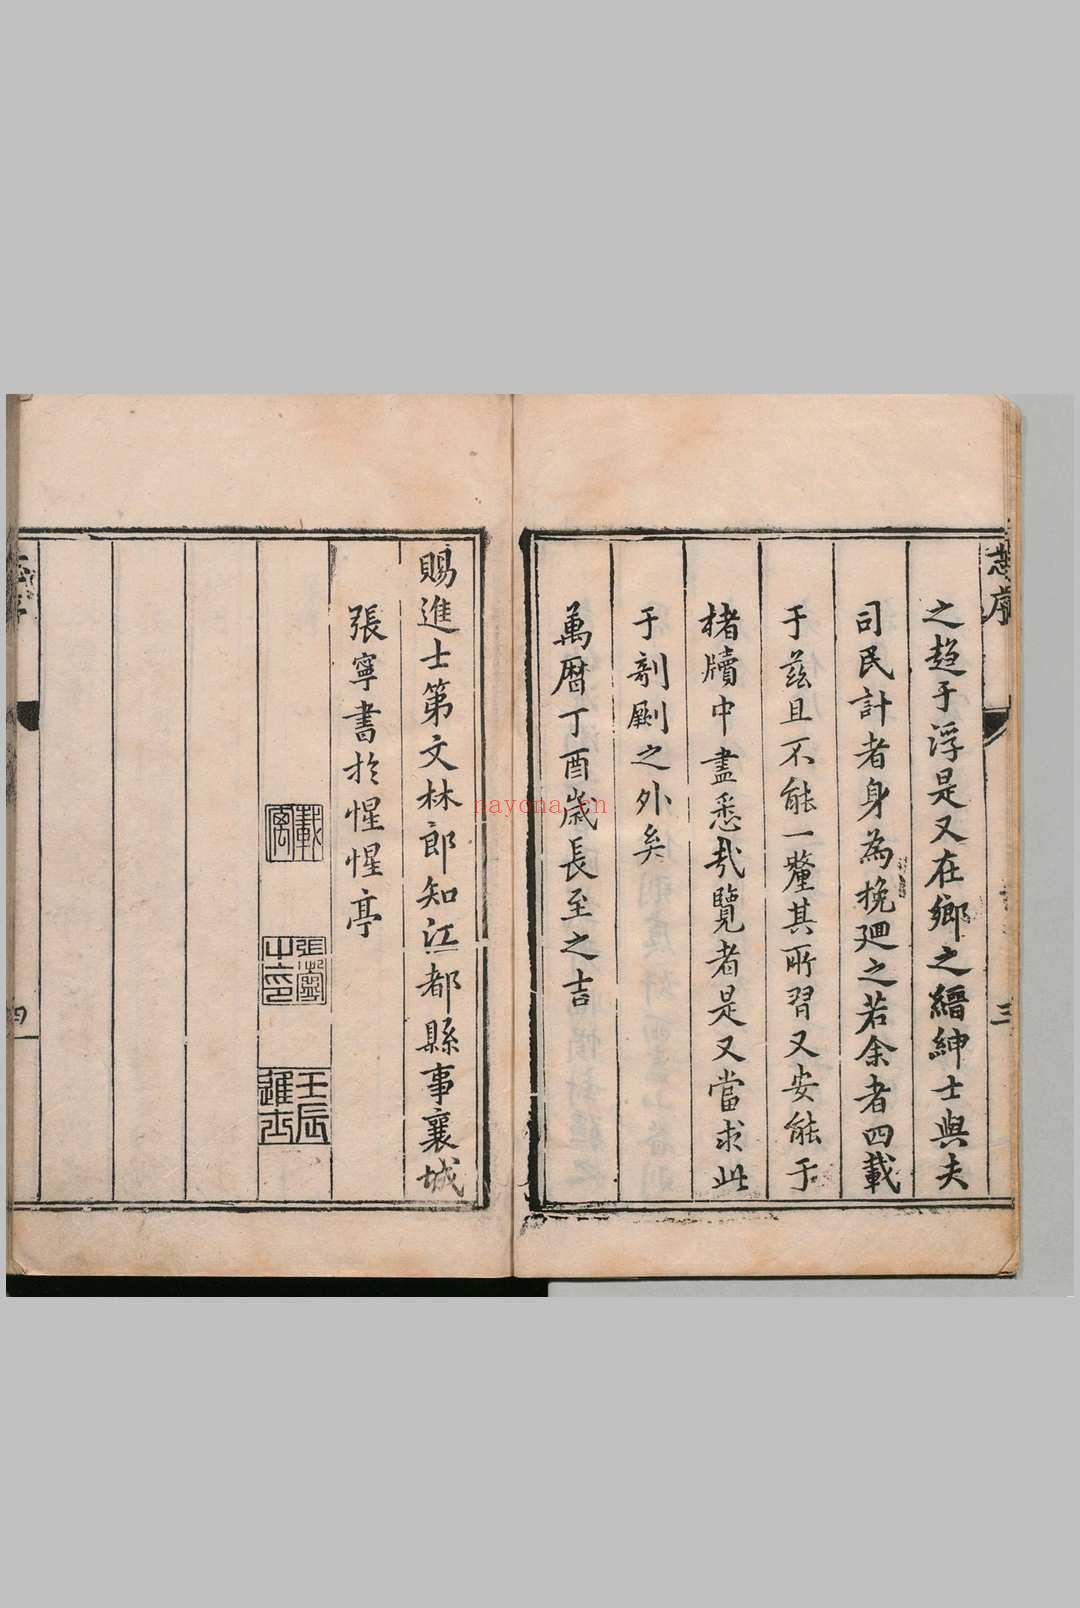 志序
三
之趋于浮是又在鄉之縉紳士與夫
司民計者身為挽廻之若余者四載
于茲且不能一釐其所習又安能于
楮牘中盡悉哉覽者是又當求此
于剞劂之外矣
萬曆丁酉歲長至之吉
賜進士第文林郎知江都縣事襄城
張寧書於惺惺亭
張寧之印
壬辰進士
四
nayona.cn